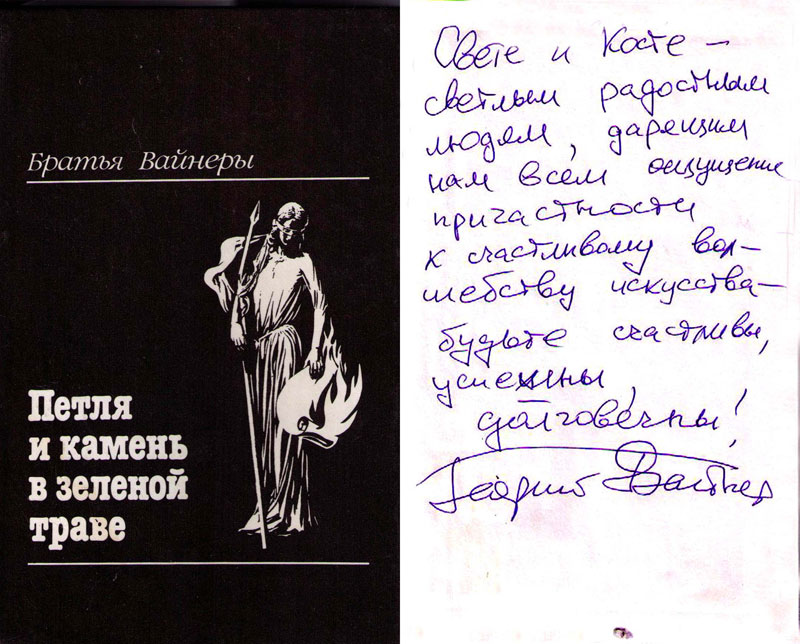 Братья Вайнеры
Петля
и камень
в зеленой
траве
Свете и Косте –
светлым радостным
людям, дарящим
нам всем ощущение
причастности
к счастливому вол-
шебству искусства –
будьте счастливы,
успешны,
долговечны!
Георгий Вайнер